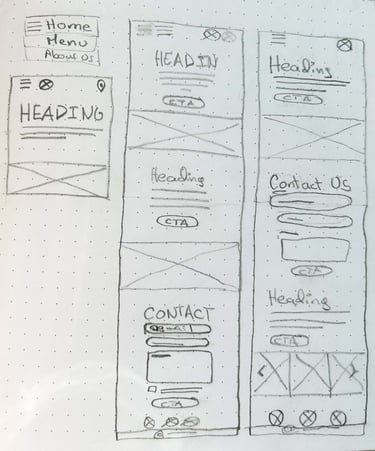 Home
Menu
About Us
HEADING
HEADIN
CTA
Heading
CTA
CONTACT
CTA
Heading
CTA
Contact Us
CTA
Heading
CTA